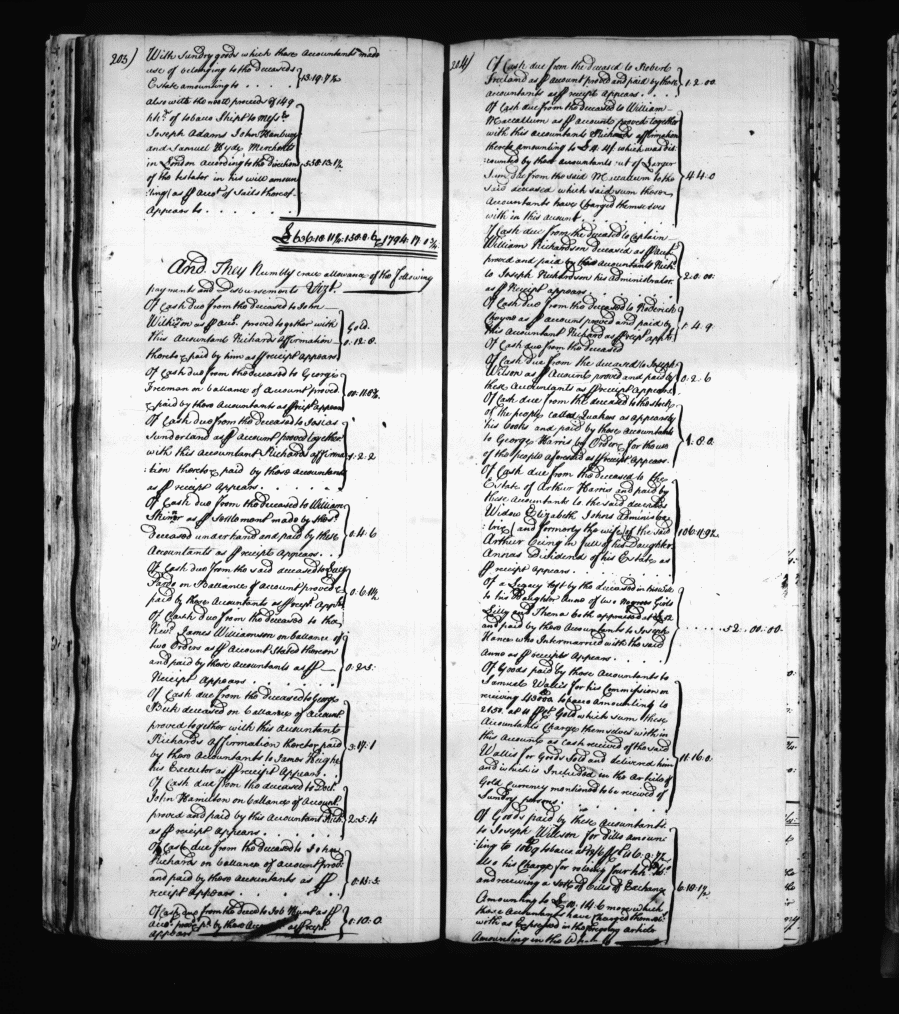 203)
With Sundry goods which these Accountants made
use of belonging to the deceaseds
Estate amounting to . . . . 13.19.7½
also with the nett proceeds of 149
hhds of tobacco Shipt to Messrs
Joseph Adams John Hanbury
and Samuel Hyde Merchants
in London according to the direction
of the testator in his will amoun
:ting as Accts of Sales thereof
Appears to . . . . . .
And They Humbly crave allowance of the following
payments and Disbursements Vizt.
Of Cash due from the deceased to John
Wilkinson as Acct. proved together with
this Accountant Richards affirmation
thereto & paid by him as receipt appears
Gold.
0:12.8.
Of Cash due from the deceased to George
Freeman on ballance of Account proved
& paid by these Accountants as rect appears
Of Cash due from the deceased to Josias
Sunderland as Account proved together
with this Accountant Richards affirma
:tion thereto & paid by these accountants
as receipt Appears . . . . . .
1.2.2
Of Cash due from the deceased to William
Skinner as Settlement made by the sd
deceased under hand and paid by these
Accountants as receipt appears . .
0.4.6
Of Cash due from the said deceased to
on Ballance of account proved &
paid by these Accountants as recpt. Appears
0.6.11½
Of Cash due from the deceased to the
Revd. James Williamson on ballance of
two Orders as Account Stated thereon
and paid by these Accountants as
Receipt Appears . . . . . . .
0.2.5.
Of Cash due from the deceased to George
Beck deceased on ballance of Account
proved together with this Accountants
Richards Affirmation thereto & paid
by these Accountants to James Heighe
his Executor as receipt Appears . .
3.17.1
Of Cash due from the deceased to Doctr.
John Hamilton on ballance of Account
proved and paid by this Accountant Richd.
as receipt appears . . . . . .
2.5.4
Of Cash due from the deceased to John
Prichard on ballance of account proved
and paid by these Accountants as
receipt Appears . . . . . . .
0.15.3.
Of Cash due from the deced to Job Hunt as
Acct. proved & pd. by these Accounts as recpt.
appears
5.10.0.
204)
Of Cash due from the deceased to Robert
Freland as account proved and paid by these
accountants as receipt Appears . . . .
1.2.00.
Of Cash due from the deceased to William
Maccallum as Accounts proved together
with this accountants Richards affirmation
thereto amounting to which was dis
:counted by these accountants out of Larger
Sum due from the said Maccallum to the
said deceased which said sum these
Accountants have Charged themselves
with in this account . . . . .
4.4.0
Of Cash due from the deceased to Captain
William Richardson deceased as Acct.
proved and paid by this Accountants Richd.
to Joseph Richardson his Administrator
as Receipt appears . . . . .
2.0.00.
Of Cash due from the deceased to Roderick
as account proved and paid by
this Accountant Richard as recpt appears
1.4.9.
Of Cash due from the deceased
Of Cash due from the deceased to Joseph
Wilson as Account proved and paid by
these Accountants as receipt Appears
0.2.6
Of Cash due from the deceased to the stock
of the people called Quakers as appears by
his books and paid by these accountants
to George Harris by Order for the use
of the people aforesaid as receipt Appears.
1.8.0.
Of Cash due from the deceased to the
Estate of Arthur Harris and paid by
these Accountants to the said deceaseds
Widow Elizabeth Johns Administra
:trix and formerly the wife of the said
Arthur being in full of his Daughter
Annas dividend of his Estate as
receipt appears . . . . .
106.11.9½
Of a Legacy left by the deceased in his Will
to his Daughter Anne of two Negroes Girls
Lilly and Thena both appraised at £52
and paid by these Accountants to Joseph
Hance who Intermarried with the said
Anne as receipt Appears . . . .
. . . . . . 52.00.00.
Of Goods paid by these Accountants to
Samuel Wallis for his Commission on
receiving 43000 tobacco amounting to
2150. at 11 Ct Gold which Sum these
Accountants Charge themselves with in
this Accounts as Cash received of the said
Wallis for Goods Sold and delivered him
and which is Included in the Article of
Gold Currency mentioned to be received of
Sundry persons . . . . . .
11.16.0.
Of Goods paid by these Accountants
to Joseph Willson for ditto amoun
:ting to tobacco
Also his Charge for rolling four hhds Do.
and receiving a Sett of Bills of Exchange
Amounting to more which
these Accountants have Charged themselves
with as Expressed in the foregoing article
Amounting in the Whole
6.10.1½